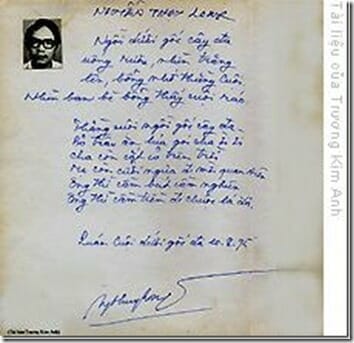 NGUYỄN THỤY LONG
Ngồi dưới gốc cây đa
uống rượu, nhìn trăng
lên, bỗng nhớ thằng Cuội
Nhìn bạn bè bỗng thấy cười
Thằng cuội ngồi gốc cây đa
Bỏ trâu ăn lúa gọi cha ời ời
Cha còn cắt cỏ trên trời
Mẹ còn cưỡi ngựa đi mời quan viên
Ông thì cầm bút cầm nghiên
Ông thì cầm tiền đi chuộc lá đa
Quán Cuội dưới gốc đa 10.8.95
Tài liệu của Trương Kim Anh
(Tài liệu Trương Kim Anh)